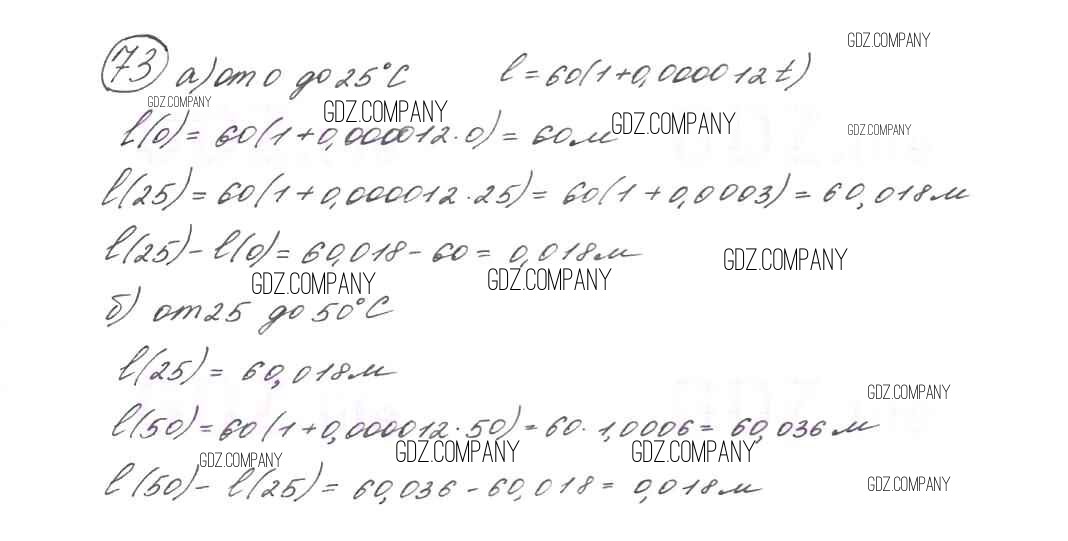 73 а) от 0 до 25°С l = 60(1+0,000012t)
GDZ.COMPANY
GDZ.COMPANY GDZ.COMPANY GDZ.COMPANY GDZ.COMPANY
l(0) = 60(1+0,000012·0) = 60м
l(25) = 60(1+0,000012·25) = 60(1+0,0003) = 60,018м
l(25) - l(0) = 60,018 - 60 = 0,018м
GDZ.COMPANY GDZ.COMPANY GDZ.COMPANY
б) от 25 до 50°С
l(25) = 60,018м
GDZ.COMPANY
l(50) = 60(1+0,000012·50) = 60·1,0006 = 60,036м
GDZ.COMPANY GDZ.COMPANY GDZ.COMPANY
l(50) - l(25) = 60,036 - 60,018 = 0,018м
GDZ.COMPANY